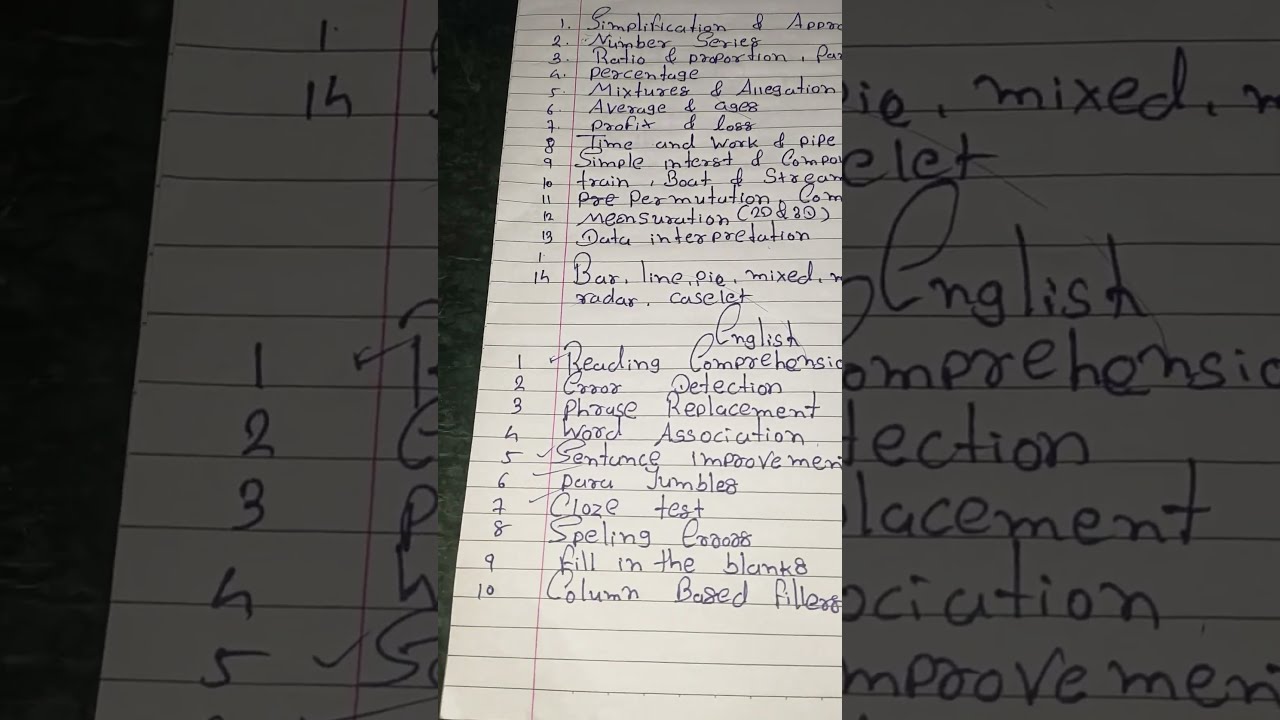 1. Simplification & Appro
2. Number Series
3. Ratio & proportion, Par
4. percentage
5. Mixtures & Allegation
6. Average & ages
7. profit & loss
8 Time and work & pipe
9 Simple interst & Compou
10 train, Boat & Stream
11 pre permutation, Com
12 Meansuration (2D & 3D)
13 Data interpretation
1
14 Bar, line, pie, mixed, m
radar, caselet
English
1 Reading Comprehensio
2 Error Detection
3 phrase Replacement
4 Word Association
5 Sentunce improvemen
6 para Jumbles
7 Cloze test
8 Speling Errors
9 fill in the blanks
10 Column Based fillers